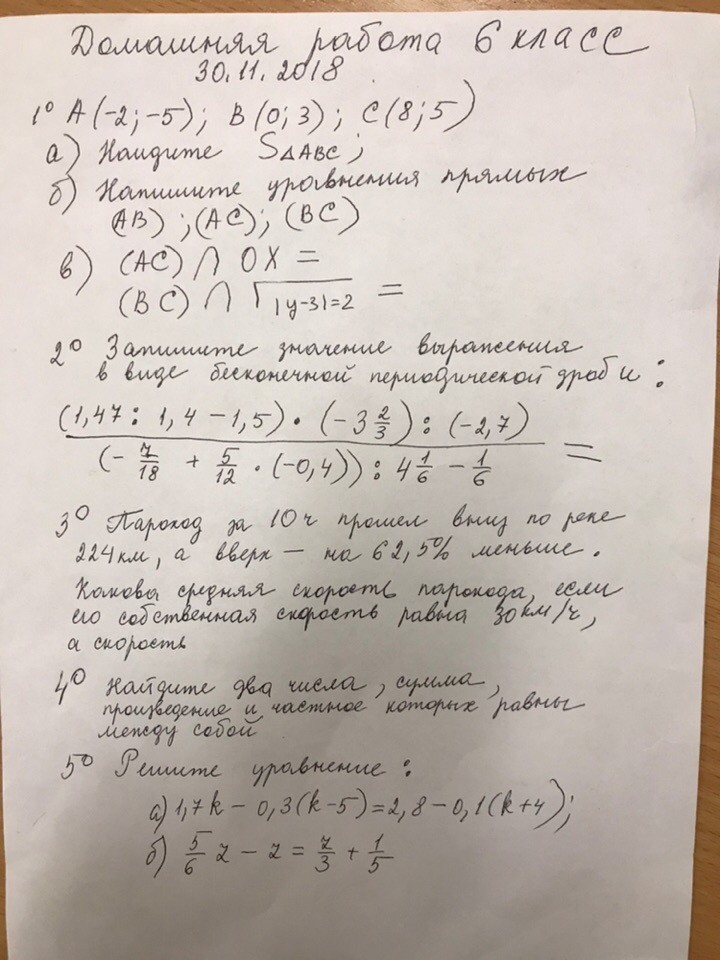 Домашняя работа 6 класс
30.11.2018
1° A(-2;-5); B(0;3); C(8;5)
а) Найдите S△ABC;
б) Напишите уравнения прямых
(AB); (AC); (BC)
в) (AC) ∩ OX =
(BC) ∩ Г|y-3|=2 =
2° Запишите значение выражения
в виде бесконечной периодической дроби:
(1,47 : 1,4 - 1,5) · (-3 2/3) : (-2,7)
(- 7/18 + 5/12 · (-0,4)) : 4 1/6 - 1/6 =
3° Пароход за 10 ч прошел вниз по реке
224 км, а вверх — на 62,5% меньше.
Какова средняя скорость парохода, если
его собственная скорость равна 30 км/ч,
а скорость
4° Найдите два числа, сумма,
произведение и частное которых равны
между собой
5° Решите уравнение:
а) 1,7k - 0,3(k-5) = 2,8 - 0,1(k+4);
б) 5/6 z - z = z/3 + 1/5